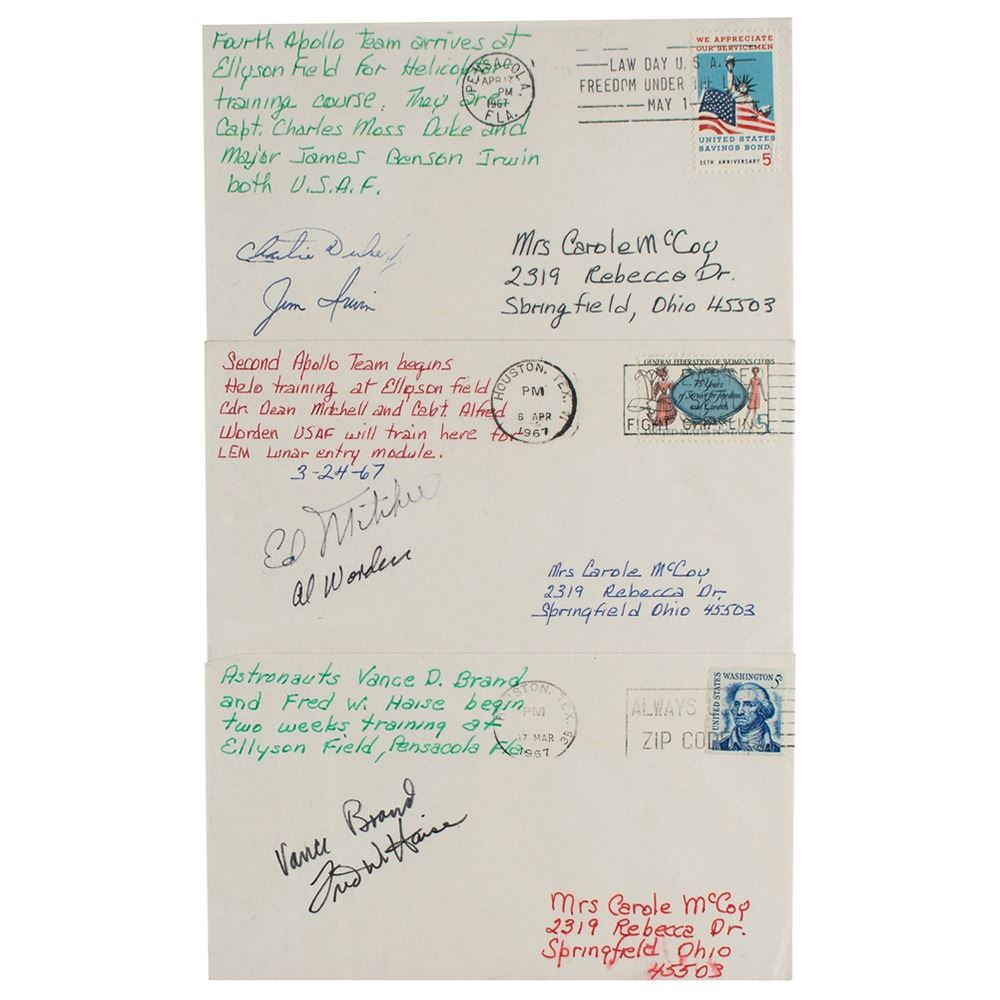 Fourth Apollo Team arrives at
Ellyson Field for Helicopter
training course. They are
Capt. Charles Moss Duke and
Major James Benson Irwin
both U.S.A.F.
PENSACOLA,
APR 17
PM
1967
FLA.
LAW DAY U.S.A.
FREEDOM UNDER THE L
MAY 1
WE APPRECIATE
OUR SERVICEMEN
UNITED STATES
SAVINGS BOND
25TH ANNIVERSARY 5
Charlie Duke
Jim Irwin
Mrs Carole McCoy
2319 Rebecca Dr.
Springfield, Ohio 45503
Second Apollo Team begins
Helo training at Ellyson Field
Cdr. Dean Mitchell and Capt. Alfred
Worden USAF will train here for
LEM Lunar entry module.
3-24-67
HOUSTON, TEX.
PM
6 APR
1967
GENERAL FEDERATION OF WOMEN'S CLUBS
75 Years
of Service for Freedom
and Growth
FIGHT
UNITED STATES POSTAGE 5c
Ed Mitchell
Al Worden
Mrs Carole McCoy
2319 Rebecca Dr.
Springfield Ohio 45503
Astronauts Vance D. Brand
and Fred W. Haise begin
two weeks training at
Ellyson Field, Pensacola Fla
HOUSTON, TEX.
PM
17 MAR
1967
ALWAYS
ZIP CODE
WASHINGTON 5c
UNITED STATES
Vance Brand
Fred W Haise
Mrs Carole McCoy
2319 Rebecca Dr.
Springfield Ohio
45503